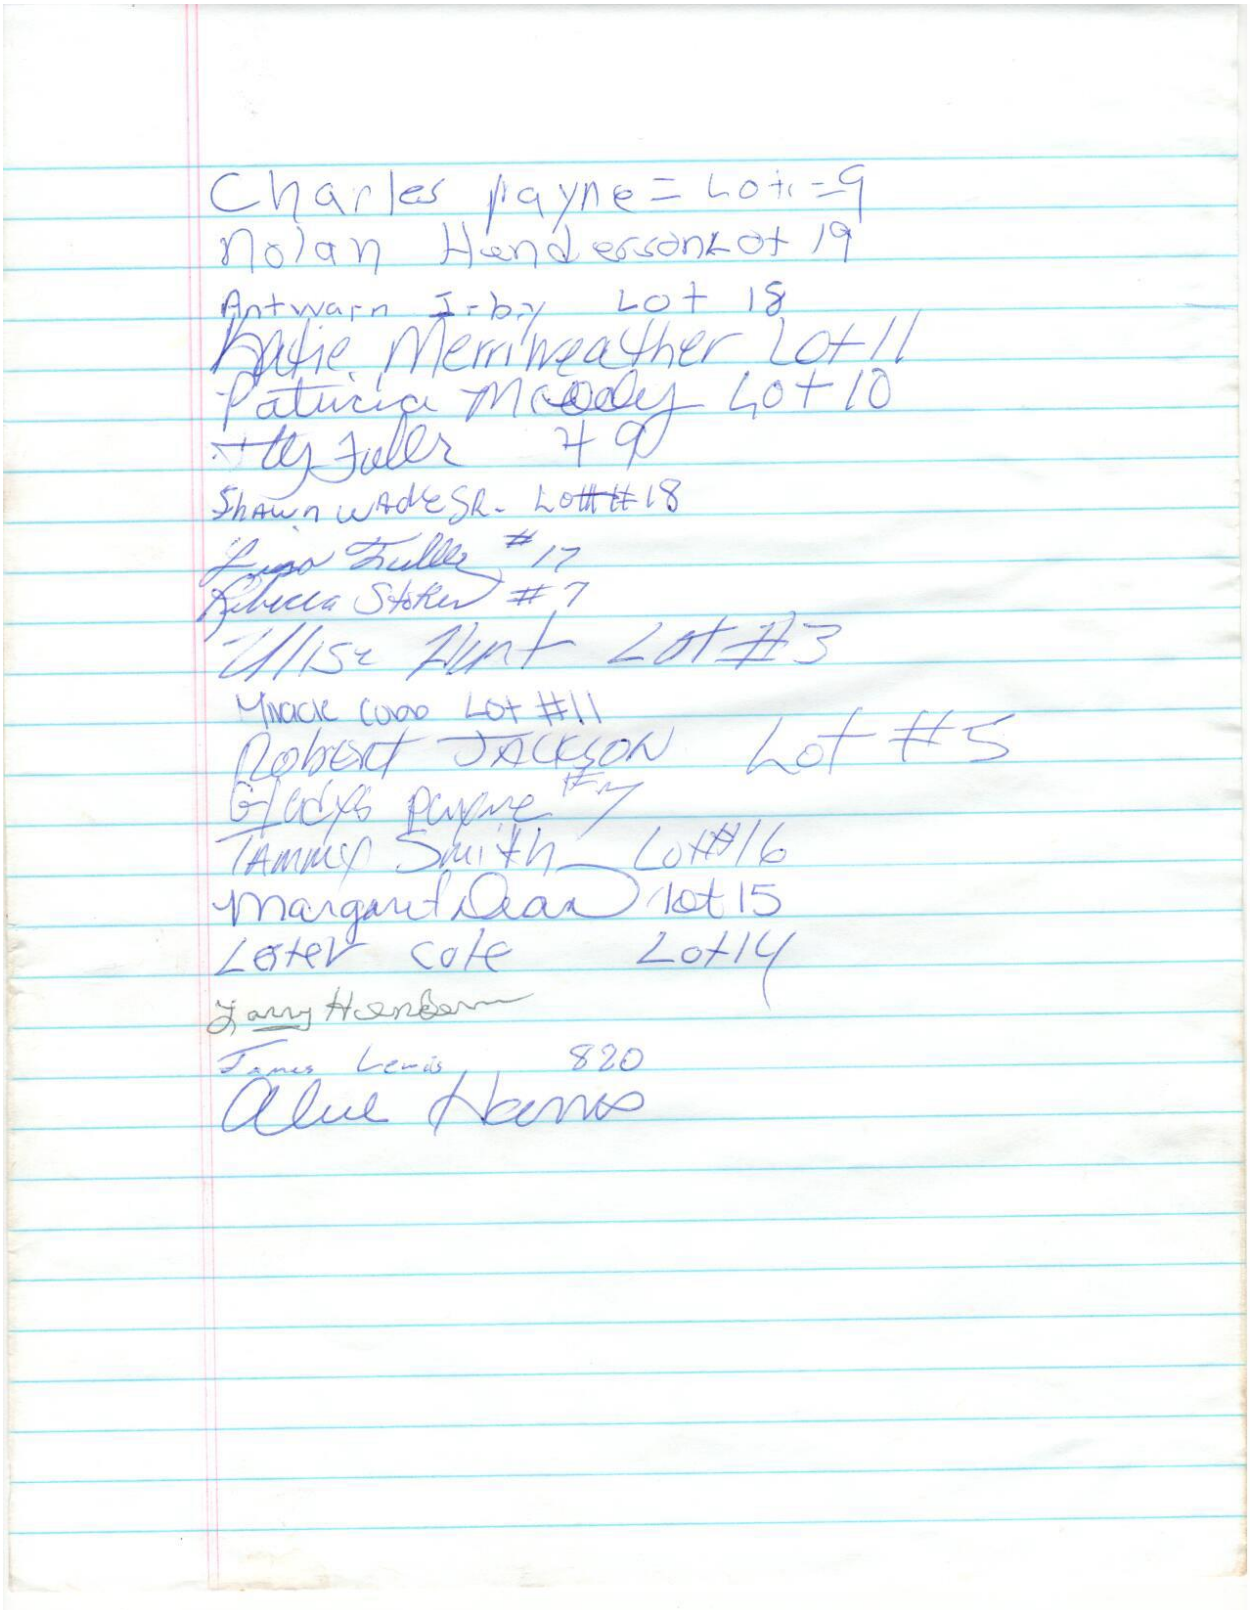 Charles payne = Lot = 9
Nolan Henderson Lot 19
Antwarn Irby Lot 18
Katie Merriweather Lot 11
Patricia Moody Lot 10
Fuller # 9
Shawn Wade SR. Lot # 18
Lisa Fuller # 17
Rebecca Stokes # 7
Ulise Hunt Lot #3
Lot #11
Robert JACKSON Lot #5
Gladys payne # 7
TAMMY Smith Lot #16
Margaret Dean lot 15
Lester Cole Lot 14
Larry Henderson
James Lewis 820